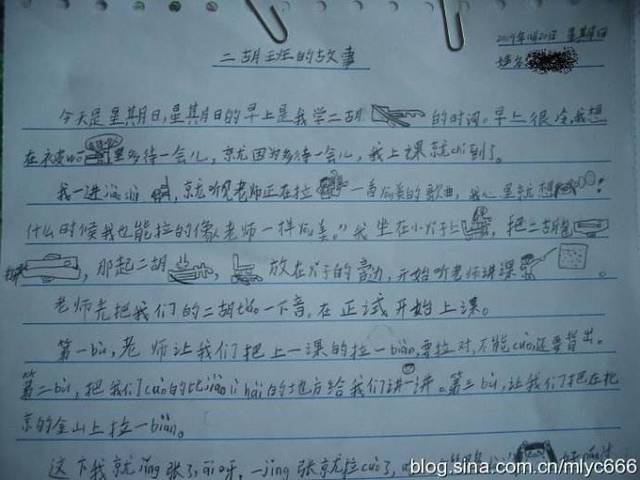 星期日
姓名
二胡班的故事
今天是星其月日,星其月日的早上是我学二胡的时间。早上很冷,我想
在被里多待一会儿,京尤因为多待一会儿,我上课就chi到了。
我一进,京尤听见老师正在拉一首的歌曲,我心里就想
什么时候我也能拉的像老师一样美。"我坐在小上,把二胡
,那起二胡,放在的音边,开始听老师讲课。
老师先把我们的二胡一下音,在正式开始上课。
第一bù,老师让我们把上一课的拉一biàn,要拉对,不能cuò,还要背出。
第二bù,把我们cuò的比jiào lì hài的地方给我们讲一讲。第三bù,让我们把在北
京的金山上拉一biàn。
这下我就jǐng张了,āi呀,一jǐng张就拉cuò了,
blog.sina.com.cn/mlyc666